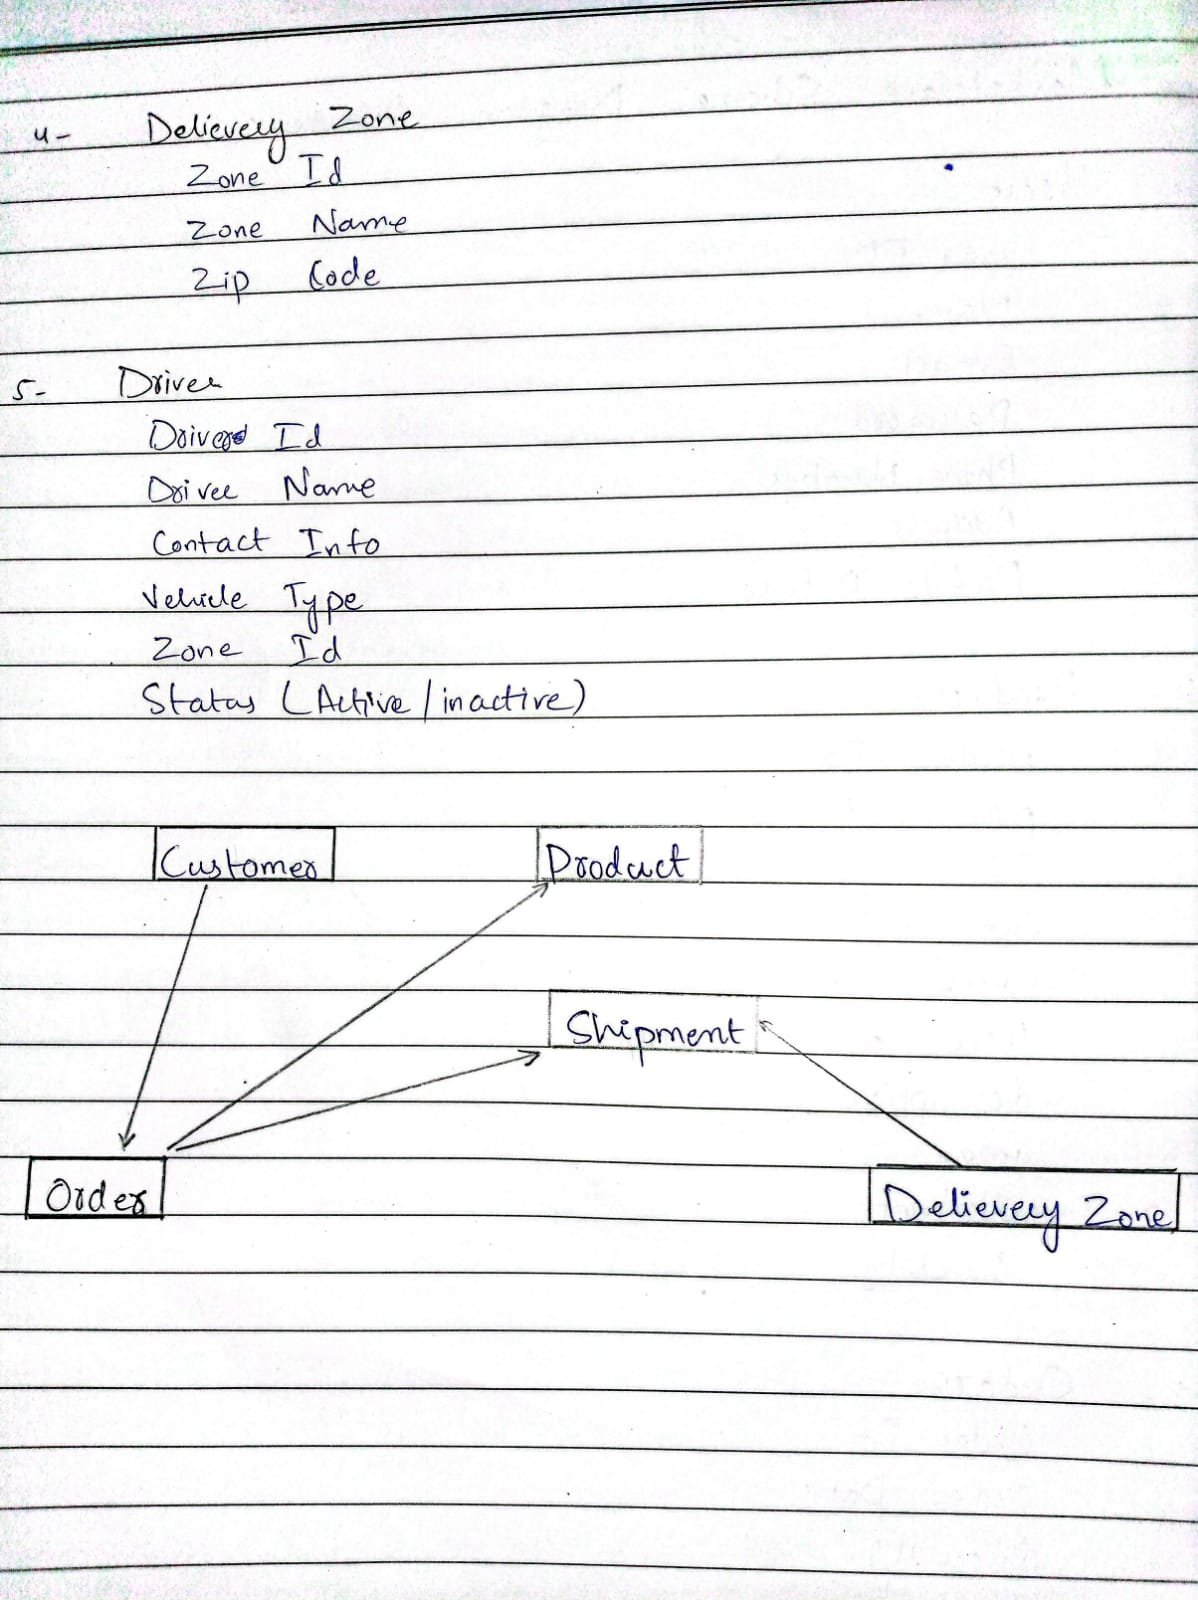 4- Delievery Zone
Zone Id
Zone Name
Zip Code
5- Driver
Driver Id
Driver Name
Contact Info
Vehicle Type
Zone Id
Status (Active/inactive)
Customer Product
Shipment
Order Delievery Zone